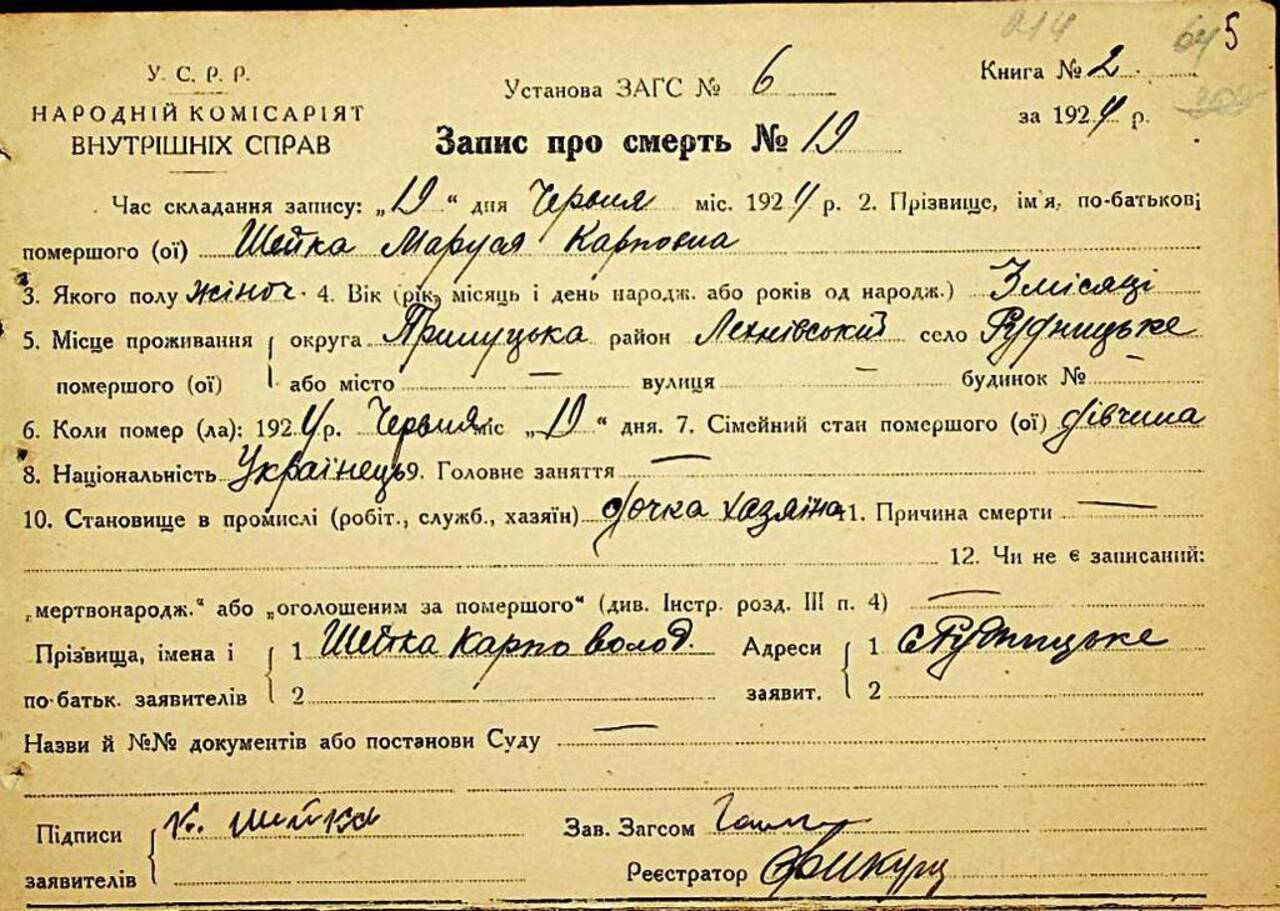 214 645
У. С. Р. Р.
НАРОДНІЙ КОМІСАРІЯТ
ВНУТРІШНІХ СПРАВ
Установа ЗАГС № 6
Книга № 2
за 1924 р.
Запис про смерть № 19
Час складання запису: „19“ дня Червня міс. 1924 р. 2. Прізвище, ім'я, по-батькові
помершого (ої) Шейка Маруся Карповна
3. Якого полу жіноч. 4. Вік (рік, місяць і день народж. або років од народж.) 3 місяці
5. Місце проживання округа Прилуцька район Лехнівський село Рудницьке
помершого (ої) або місто — вулиця — будинок № —
6. Коли помер (ла): 1924 р. Червня міс „19“ дня. 7. Сімейний стан помершого (ої) дівчина
8. Національність Українець 9. Головне заняття —
10. Становище в промислі (робіт., служб., хазяїн) дочка хазяїна 11. Причина смерти —
12. Чи не є записаний:
„мертвонародж.“ або „оголошеним за помершого“ (див. Інстр. розд. III п. 4) —
Прізвища, імена і 1 Шейка Карпо Волод. Адреси 1 с Рудницьке
по-батьк. заявителів 2 заявит. 2
Назви й №№ документів або постанови Суду —
Підписи К. Шейка Зав. Загсом
заявителів Реєстратор